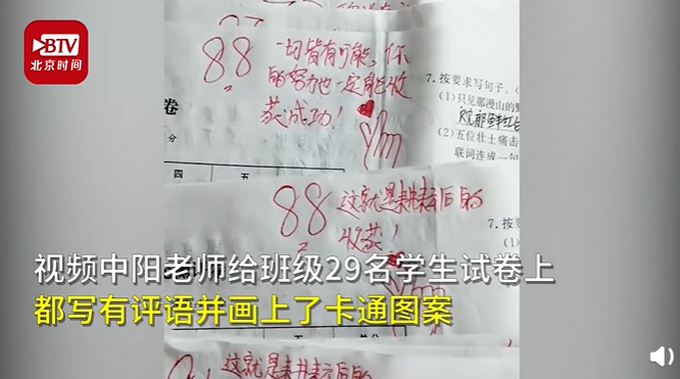 BTV
北京时间
88
一切皆有可能,你
的努力也一定能收
获成功!
卷
分
四
五
7.按要求写句子。
(1)只见那漫山的
(2)五位壮士痛击
联词连成一句
88
这就是耕耘后的
收获!
7.按要
(1)
视频中阳老师给班级29名学生试卷上
都写有评语并画上了卡通图案
这就是耕耘后的